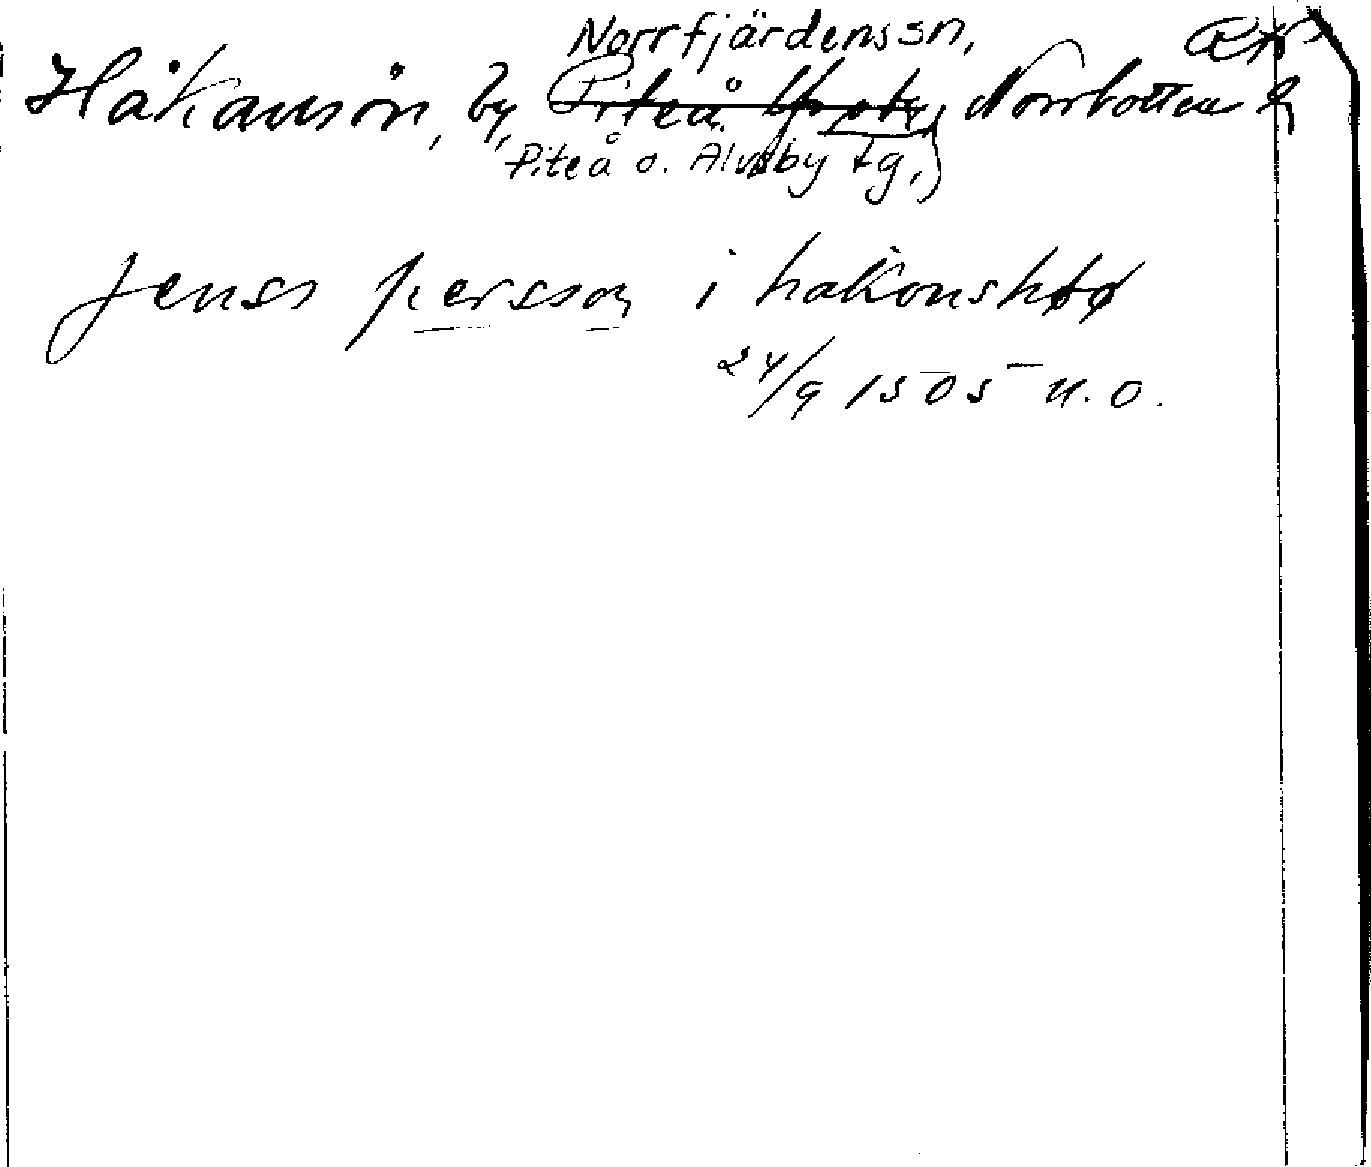 Norrfjärdens sn,
Håkansön, by, Piteå Norrbotten
Piteå o. Älvsby tg,
jenss persson i hakonshøø
24/9 1505 u.o.